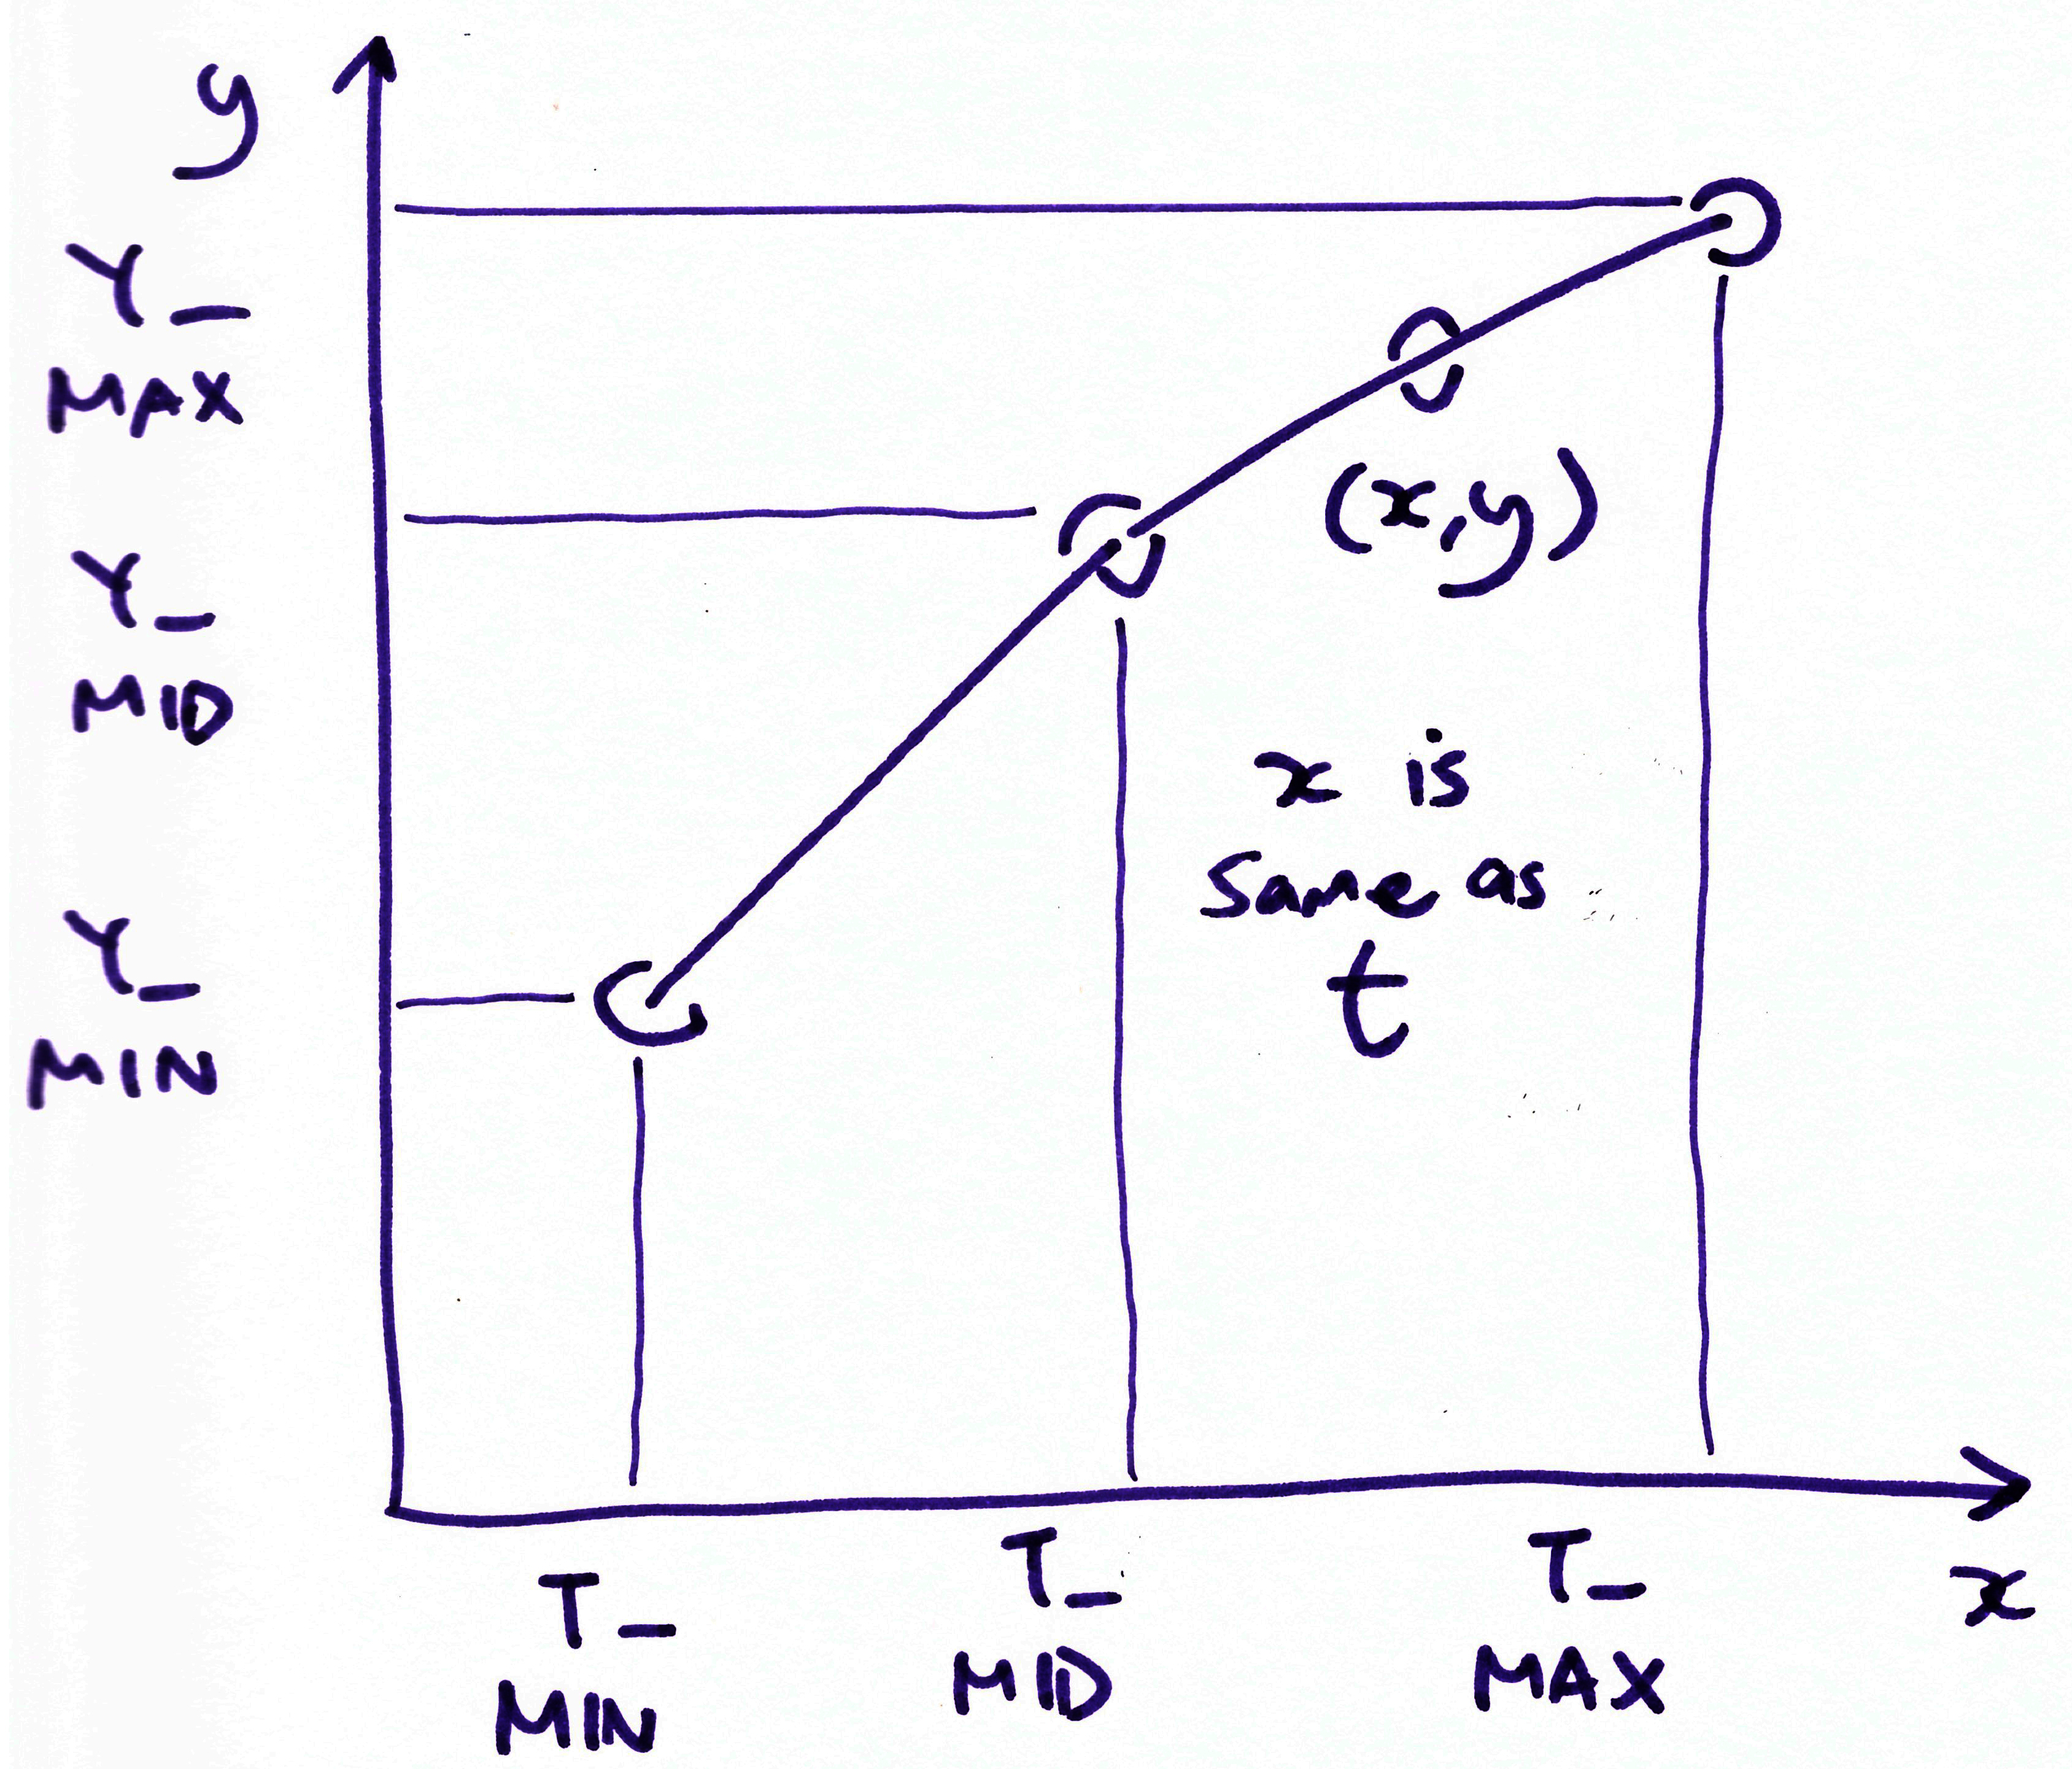 y
Y_
MAX
Y_
MID
Y_
MIN
(x,y)
x is
same as
t
T_
MIN
T_
MID
T_
MAX
x